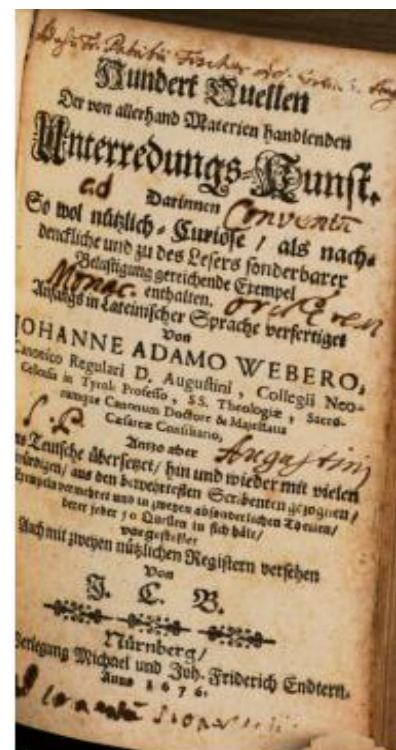 Hundert Quellen
Der von allerhand Materien handlenden
Unterredungs-Kunst.
ad
Darinnen Conventũ
So wol nützlich-Curiöse / als nach-
denckliche und zu des Lesers sonderbarer
Belustigung gereichende Exempel
Monac. enthalten.
Anfangs in Lateinischer Sprache verfertiget
Von
JOHANNE ADAMO WEBERO,
Canonico Regulari D. Augustini, Collegii Neo-
Cellensis in Tyroli Professo, SS. Theologiæ, Sacro-
rumque Canonum Doctore & Majestatis
Cæsareæ Consiliario,
S. P. Augustini
Anizo aber
ins Teutsche übersetzet / hin und wieder mit vielen
würdigen / aus den bewehrtesten Scribenten gezogenen /
Exempeln vermehret und in zweyen absonderlichen Theilen /
derer jeder 50 Quellen in sich hält /
vorgestellet
Auch mit zweyen nützlichen Registern versehen
Von
J. C. B.
Nürnberg /
Verlegung Michael und Joh. Friderich Endtern.
Anno 1676.